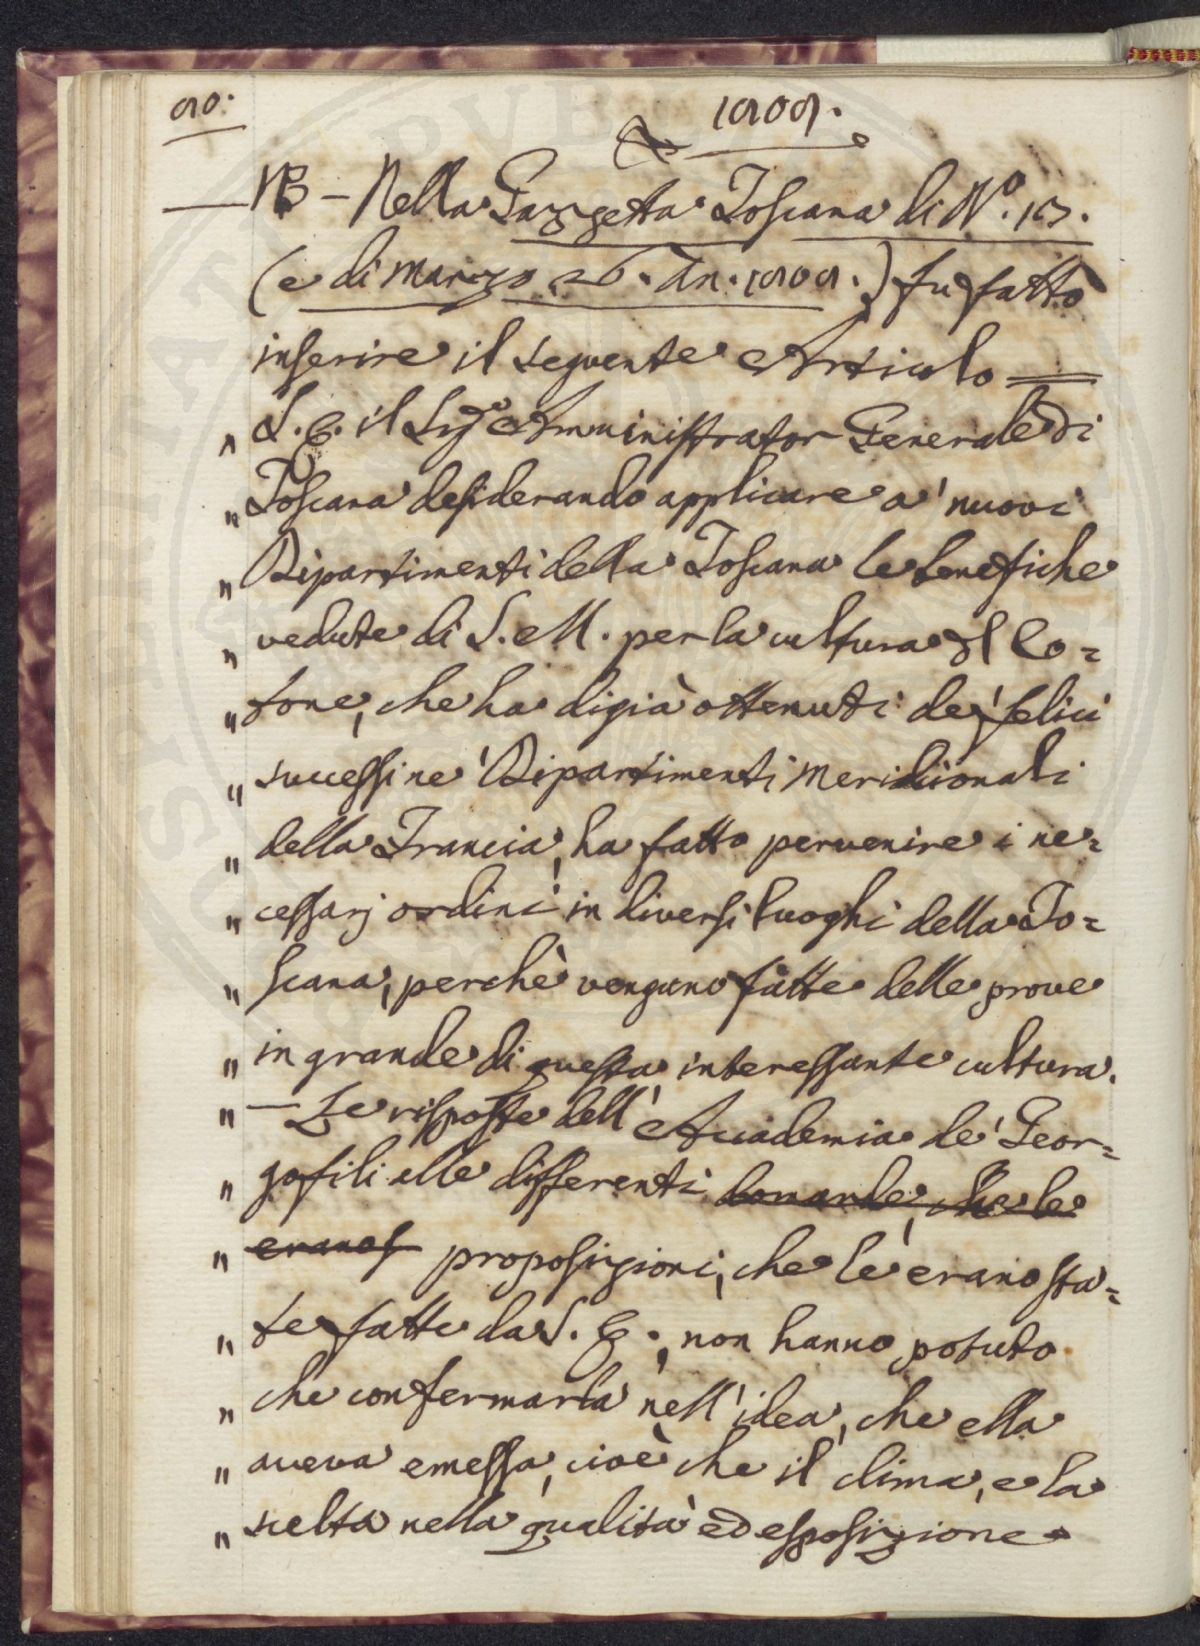 80.
1808.
NB – Nella Gazzetta Toscana di N.º 13.
(e di Marzo 26. An. 1808.) fu fatto
inserire il seguente Articolo =
„ S. E. il Sig.r Amministrator Generale di
„ Toscana desiderando applicare a' nuovi
„ Dipartimenti della Toscana le benefiche
„ vedute di S. M. per la cultura del Co=
„ tone, che ha digià ottenuti de' felici
„ successi ne' Dipartimenti Meridionali
„ della Francia, ha fatto pervenire i ne=
„ cessarj ordini in diversi luoghi della To=
„ scana, perchè vengano fatte delle prove
„ in grande di questa interessante cultura.
„ – Le risposte dell' Accademia de' Geor=
„ gofili alle differenti domande, che le
„ erano proposizioni, che le erano sta=
„ te fatte da S. E., non hanno potuto
„ che confermarla nell' idea, che ella
„ aveva emessa, cioè che il clima, e la
„ scelta nella qualità ed esposizione